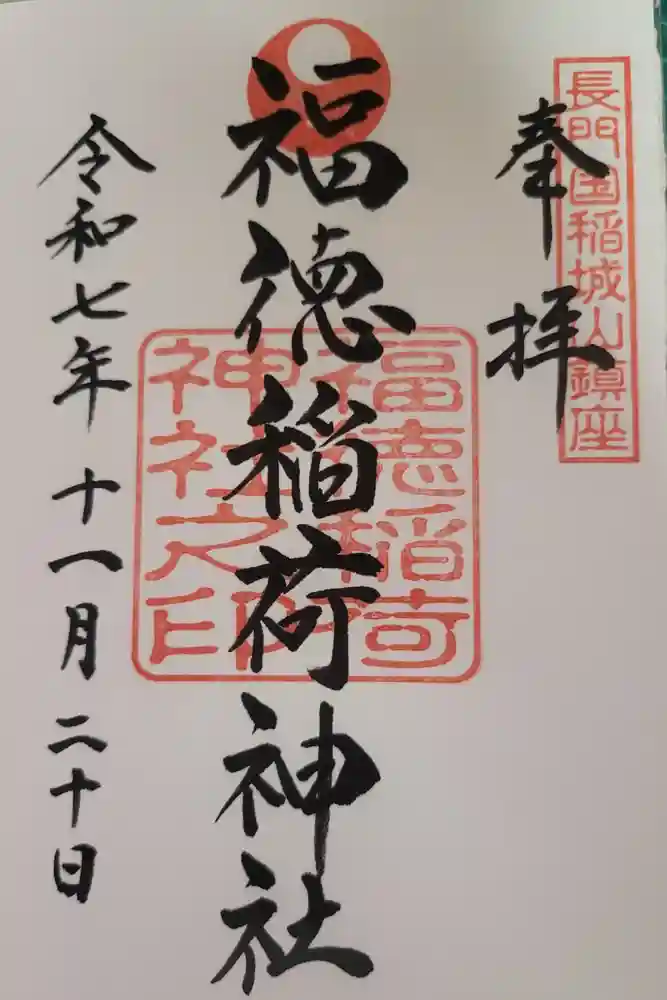 長門国稲城山鎮座
奉拝
福徳稲荷神社
福徳稲荷
神社之印
令和七年十一月二十日